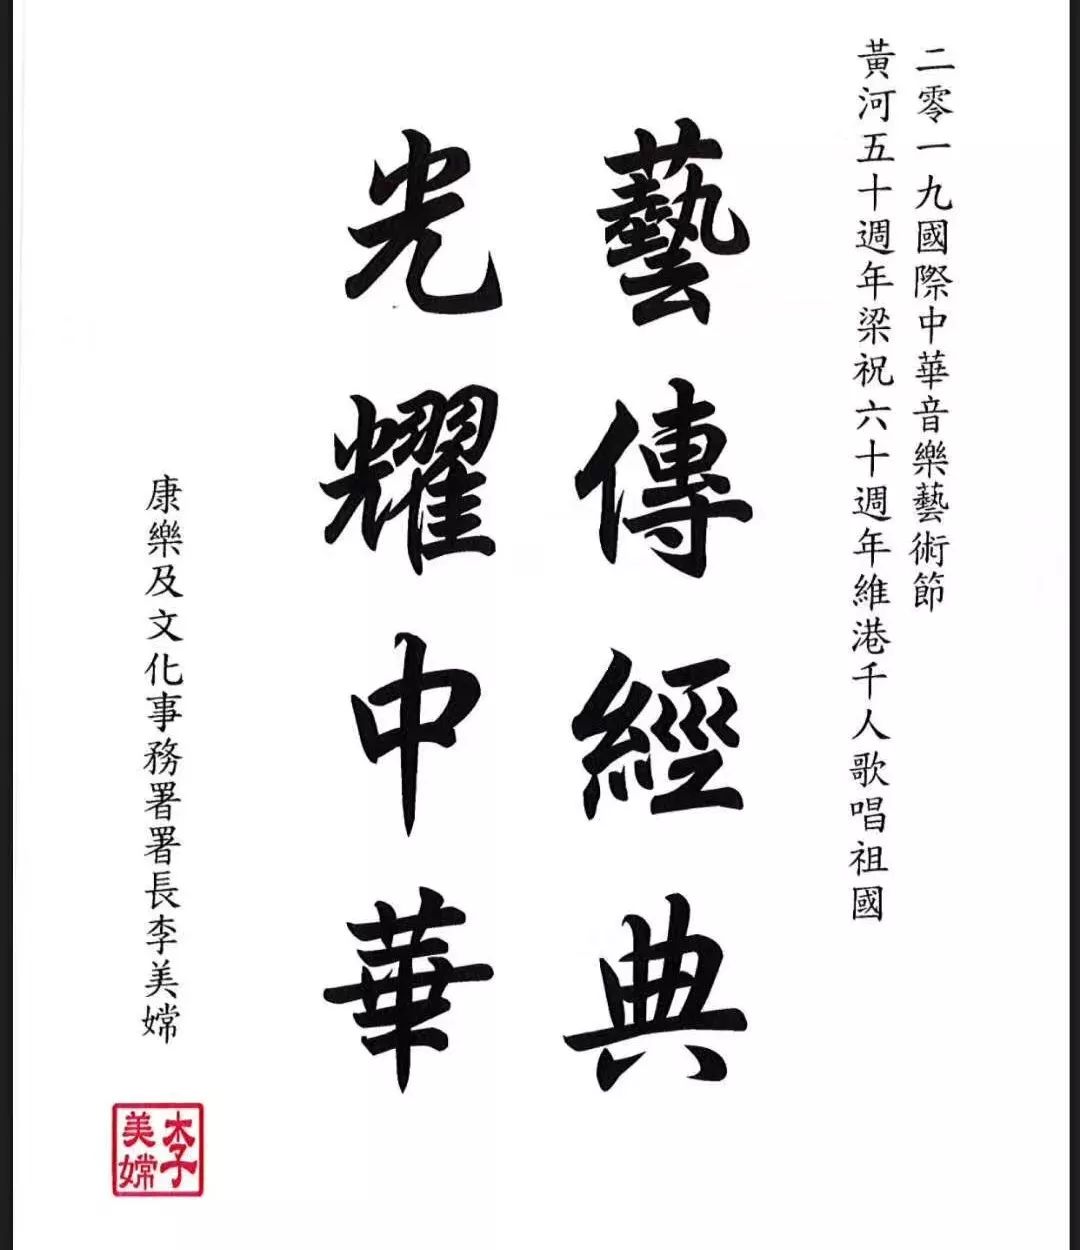 二零一九國際中華音樂藝術節
黃河五十週年梁祝六十週年維港千人歌唱祖國
藝傳經典
光耀中華
康樂及文化事務署署長李美嫦
李美嫦